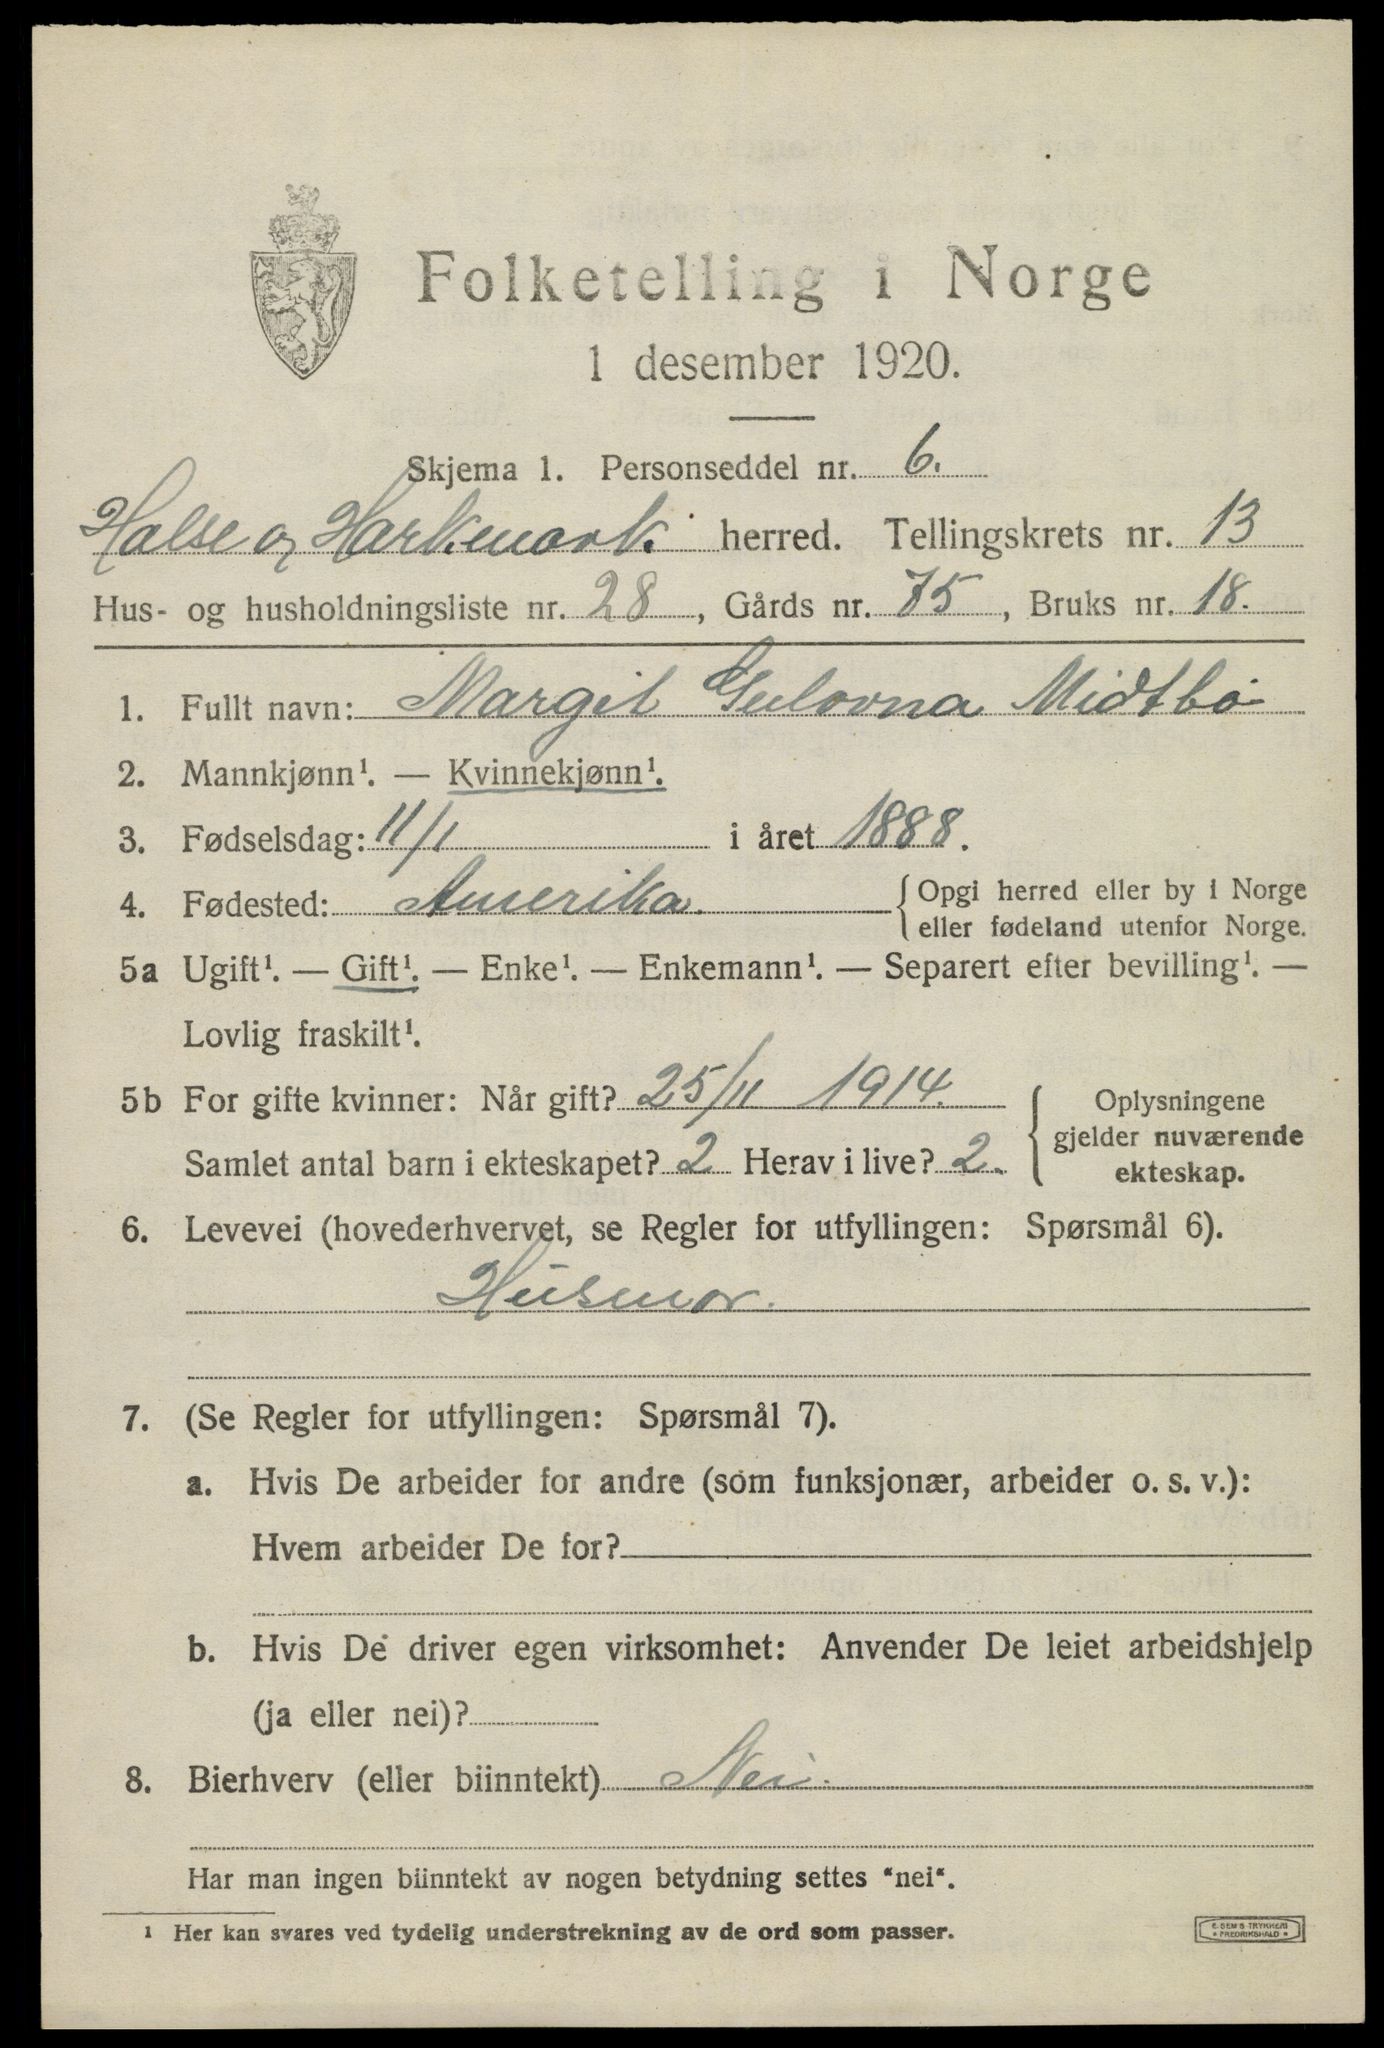 Folketelling i Norge
1 desember 1920.
Skjema 1. Personseddel nr. 6.
Halse og Harkmark herred. Tellingskrets nr. 13
Hus- og husholdningsliste nr. 28, Gårds nr. 75, Bruks nr. 18.
1. Fullt navn: Margit Gulovna Midtbö
2. Mannkjønn¹. — Kvinnekjønn¹.
3. Fødselsdag: 11/1 i året 1888.
4. Fødested: Amerika. Opgi herred eller by i Norge
eller fødeland utenfor Norge.
5a Ugift¹. — Gift¹. — Enke¹. — Enkemann¹. — Separert efter bevilling¹. —
Lovlig fraskilt¹.
5b For gifte kvinner: Når gift? 25/11 1914. Oplysningene
gjelder nuværende
Samlet antal barn i ekteskapet? 2 Herav i live? 2. ekteskap.
6. Levevei (hovederhvervet, se Regler for utfyllingen: Spørsmål 6).
Husmor.
7. (Se Regler for utfyllingen: Spørsmål 7).
a. Hvis De arbeider for andre (som funksjonær, arbeider o. s. v.):
Hvem arbeider De for?
b. Hvis De driver egen virksomhet: Anvender De leiet arbeidshjelp
(ja eller nei)?
8. Bierhverv (eller biinntekt) Nei.
Har man ingen biinntekt av nogen betydning settes "nei".
1 Her kan svares ved tydelig understrekning av de ord som passer.
E. SEM'S TRYKKERI
* FREDRIKSHALD *